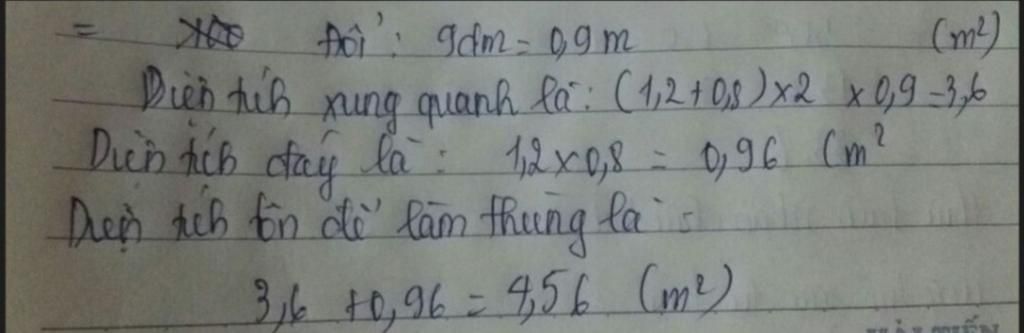 = Đổi: 9dm = 0,9 m (m²)
Diện tích xung quanh là: (1,2+0,8)×2 ×0,9=3,6
Diện tích đáy là: 1,2×0,8 = 0,96 (m²
Diện tích tôn để làm thùng là:
3,6 +0,96 = 4,56 (m²)
HẢI TIẾN